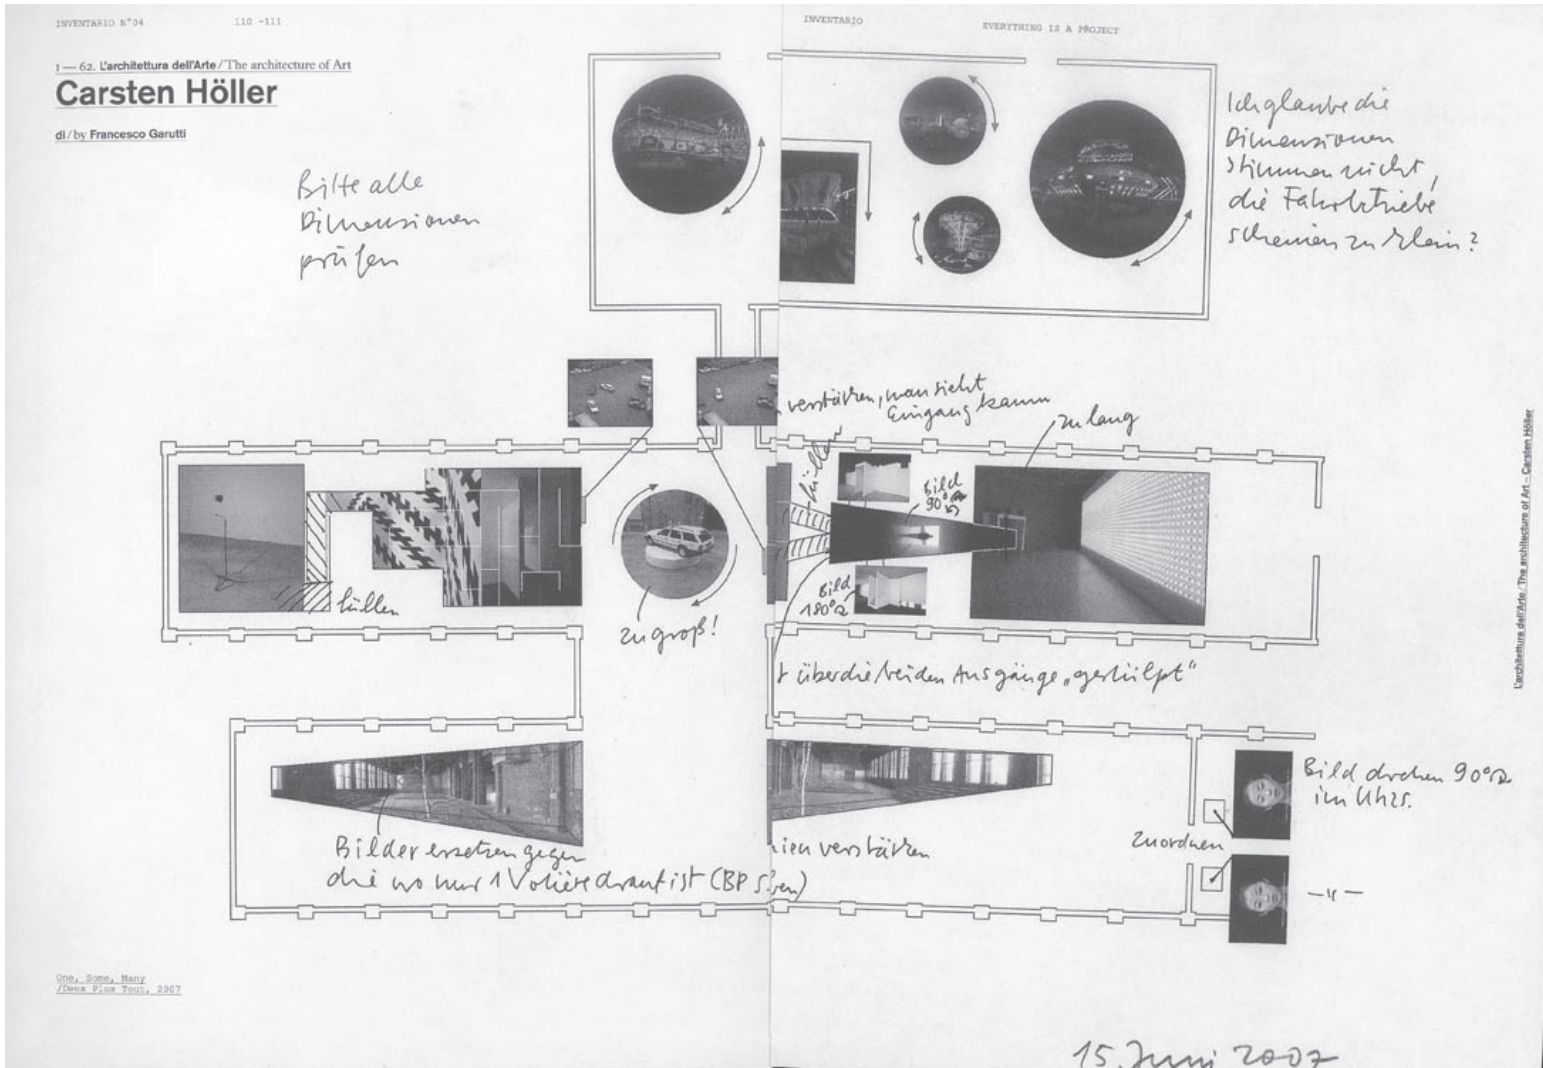 INVENTARIO N°04
110 -111
INVENTARIO
EVERYTHING IS A PROJECT
1 — 62. L'architettura dell'Arte / The architecture of Art
Carsten Höller
di / by Francesco Garutti
Bitte alle
Dimensionen
prüfen
Ich glaube die
Dimensionen
stimmen nicht,
die Fahrbetriebe
scheinen zu klein?
verstärken, man sieht
Eingang kaum
zu lang
füllen
Bild
90°
Bild
180°
füllen
zu groß!
über die beiden Ausgänge „gestülpt“
Bilder ersetzen gegen
die wo nur 1 Volière drauf ist (BP
verstärken
Bild drehen 90°
im Uhrs.
zuordnen
—"—
L'architettura dell'Arte / The architecture of Art – Carsten Höller
One, Some, Many
/Deux Plus Tout, 2007
15. Juni 2007